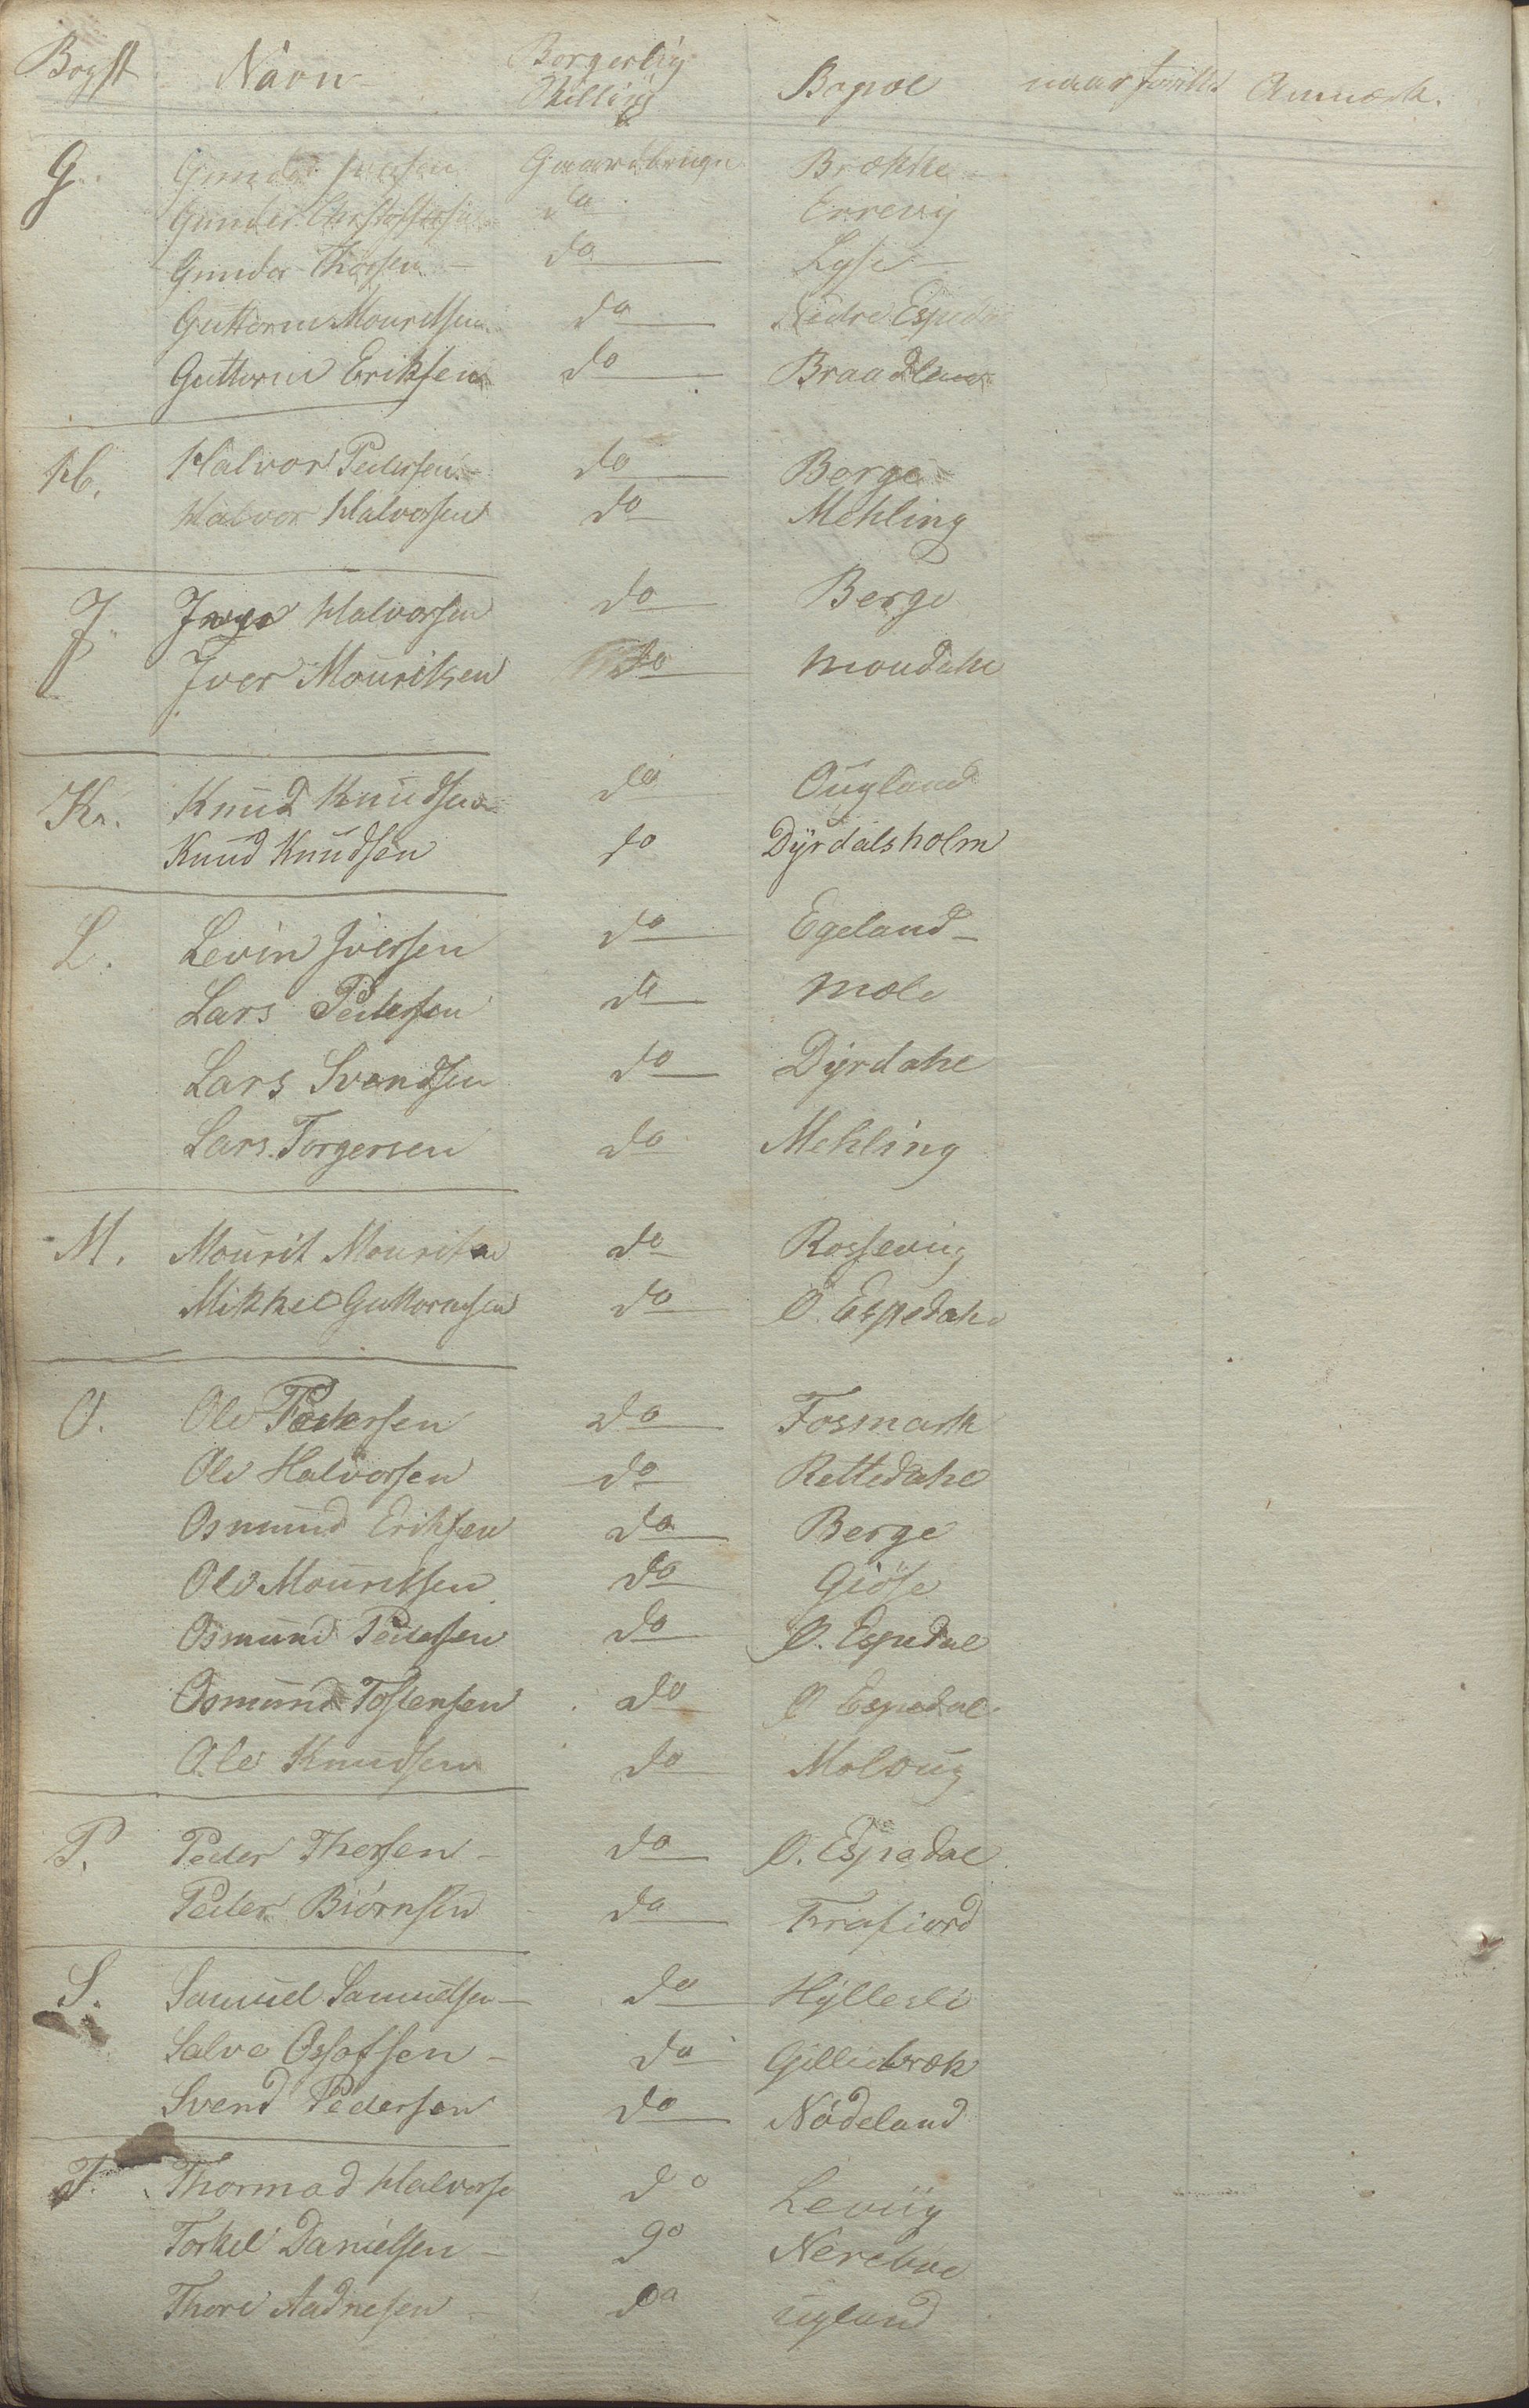 Bogst Navn Borgerlig Stilling Bopæl naar Anmærk.
G. Gunder Gaardbruger Brække
Gunder do Errevig
Gunder Thorsen do Lyse
Guttorm Mouritsen do Nedre Espedal
Guttorm Eriksen do Braadland
H. Halvor Pedersen do Berge
Halvor Halvorsen do Mehling
J. Halvorsen do Berge
Iver Mouritsen do Moudahl
K. Knud Knudsen do Ougland
Knud Knudsen do Dyrdalsholm
L. Levin Iversen do Egeland
Lars Pedersen do Mæle
Lars Svendsen do Dyrdahl
Lars Torgersen do Mehling
M. Mourit Mouritsen do Rossevig
Mikkel Guttormsen do O. Espedahl
O. Ole Pedersen do Fosmark
Ole Halvorsen do Rettedahl
Osmund Eriksen do Berge
Ole Mouritsen do Giöse
Osmund Pedersen do O. Espedal
Osmund Tostensen do O Espedal
Ole Knudsen do
P. Peder Thorsen do O. Espedal
Peder Biörnsen do Frafiord
S. Samuel Samuelsen do Hyllesli
Salve do Gilliebræk
Svend Pedersen do Nödeland
T. Thormod Halvorse do Levüg
Torkel Danielsen do Nerebøe
Thore Aadnesen do Ugland